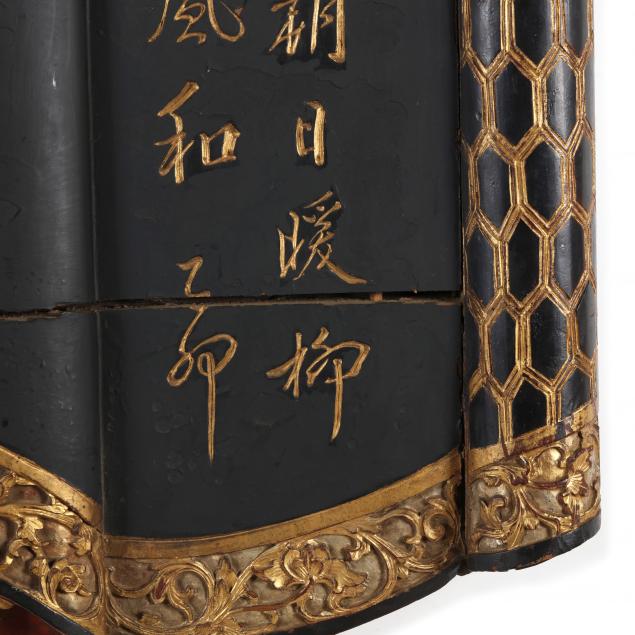 朝日暖柳
風和乙卯